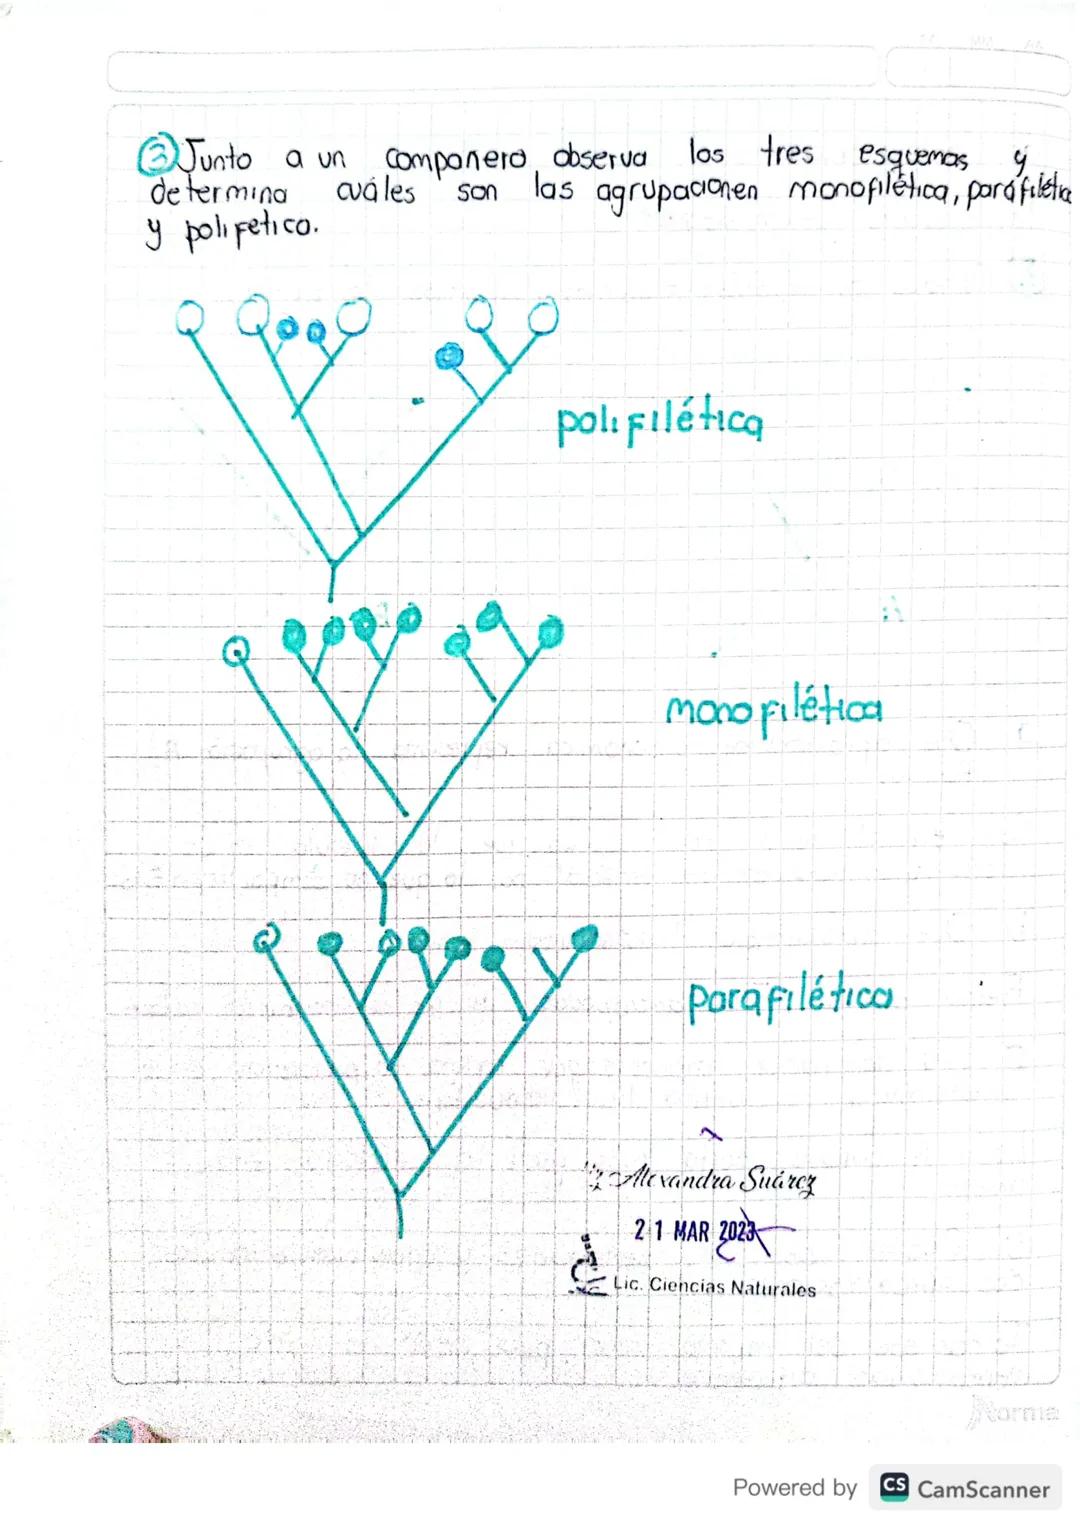 ③ Junto a un compañero observa los tres esquemas y
determina cuáles son las agrupacionen monofilética, parafilética
y polifetico.
polifilética
monofilética
parafilético
Alexandra Suárez
21 MAR 2023
Lic. Ciencias Naturales
Norma
Powered by CS CamScanner